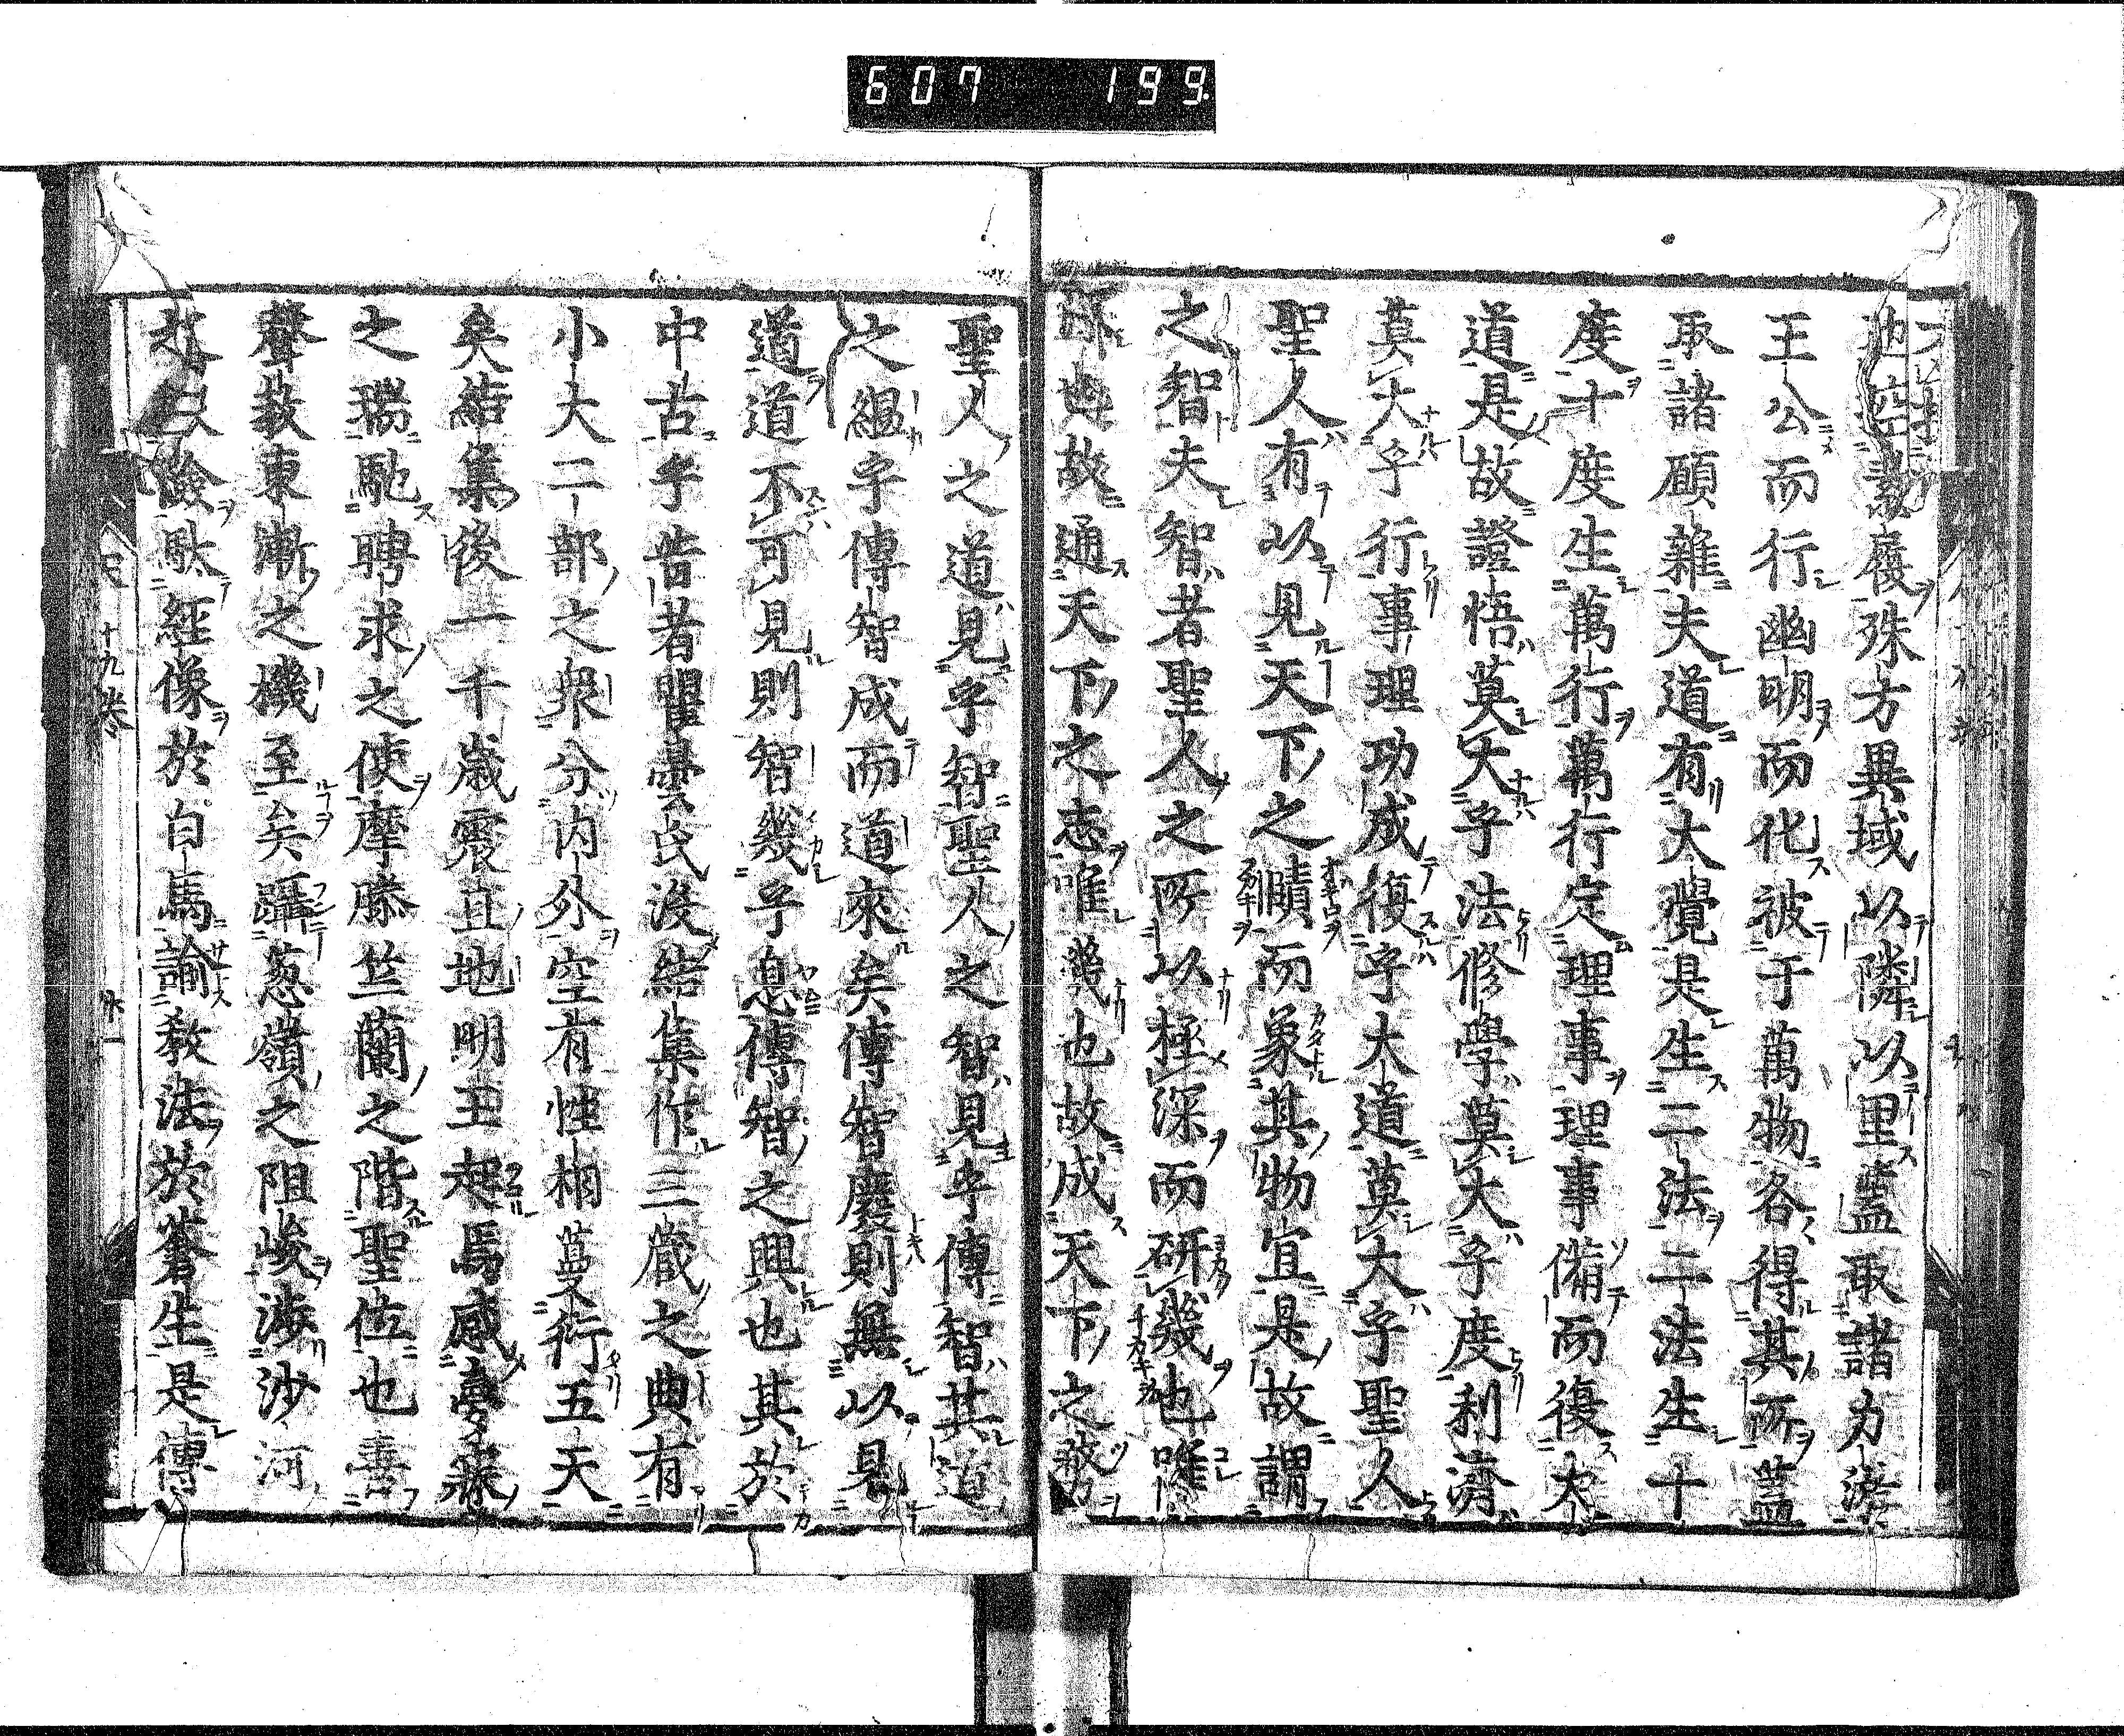 607 199
殊方異域以隣以里蓋取諸力渉
王公而行幽明而化被于萬物各得其所蓋
取諸頤雜夫道有大覺是生二法二法生十
度十度生萬行萬行定理事理事備而復大
道是故證悟莫大乎法修學莫大乎度利濟
莫大乎行事理功成復乎大道莫大乎聖人
聖人有以見天下之賾而象其物宜是故謂
之智夫智者聖人之所以極深而研幾也唯
故通天下之志唯幾也故成天下之務
聖人之道見乎智聖人之智見乎傳智其道
之縕乎傳智成而道來矣傳智廢則無以見
道道不可見則智幾乎息傳智之興也其於
中古乎昔者瞿曇氏沒結集作三藏之典有
小大二部之衆分内外空有性相葢行五天
矣結集後一千歳震旦地明王起焉感夢寐
之瑞馳聘求之使摩騰竺蘭之階聖位也善
聲教東漸之機至矣躡葱嶺之阻峻渉沙河
險駄經像於白馬諭教法於蒼生是傳
十九卷